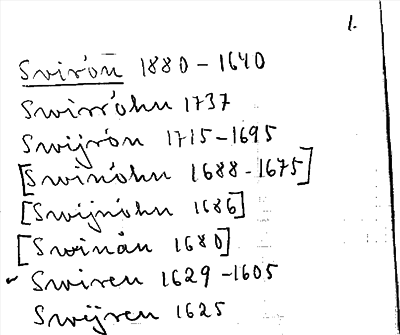 1.
Svirón 1880-1640
Swirróhn 1737
Swijrón 1715-1695
[Swinóhn 1688-1675]
[Swijnóhn 1686]
[Swinån 1680]
Swiren 1629-1605
Swijren 1625